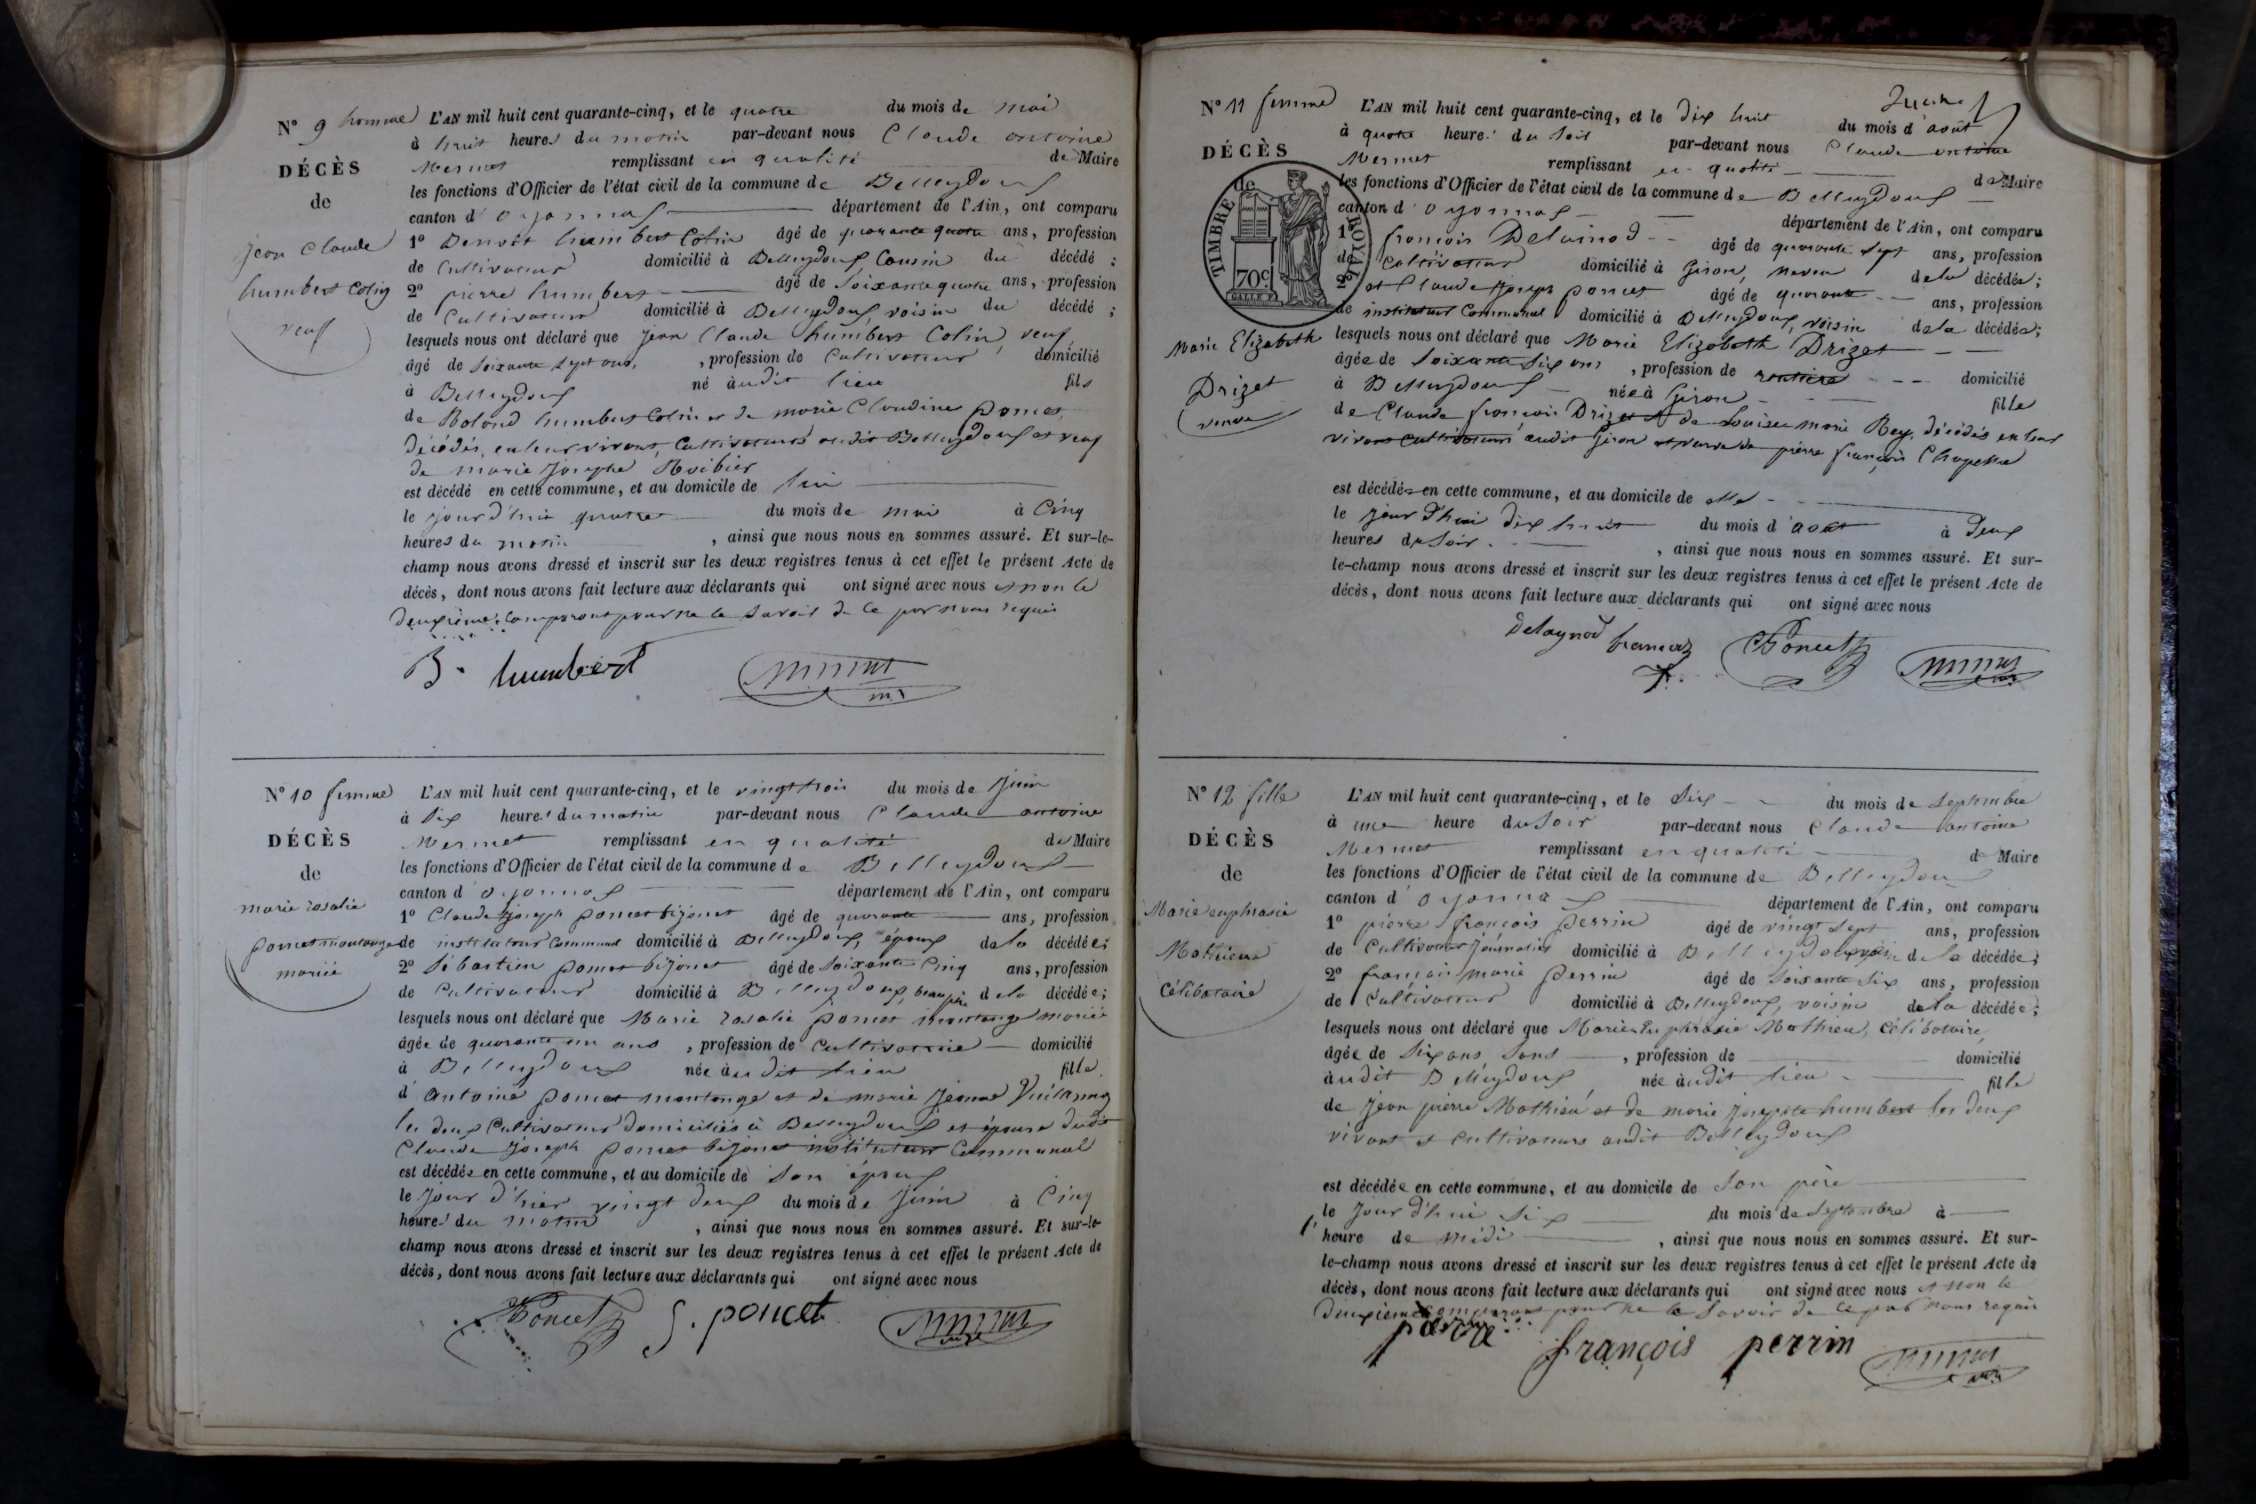 N° 9 homme
DÉCÈS
de
jean Claude
humbert Colin
veuf
L'AN mil huit cent quarante-cinq, et le quatre du mois de mai
à huit heures du matin par-devant nous Claude antoine
Mermet remplissant en qualité de Maire
les fonctions d'Officier de l'état civil de la commune de Belleydoux
canton d'oyonnax département de l'Ain, ont comparu
1° Benoit humbert Colin âgé de quarante quatre ans, profession
de Cultivateur domicilié à Belleydoux Cousin du décédé ;
2° pierre humbert âgé de Soixante quatre ans, profession
de Cultivateur domicilié à Belleydoux, voisin du décédé ;
lesquels nous ont déclaré que jean Claude humbert Colin, veuf
âgé de Soixante Sept ans, , profession de Cultivateur domicilié
à Belleydoux né audit lieu fils
de Roland humbert Colin et de marie Claudine poncet
décédés, en leur vivant, Cultivateurs audit Belleydoux et veuf
de marie josephe
est décédé en cette commune, et au domicile de lui
le jour d'hui quatre du mois de mai à Cinq
heures du matin , ainsi que nous nous en sommes assuré. Et sur-le-
champ nous avons dressé et inscrit sur les deux registres tenus à cet effet le présent Acte de
décès, dont nous avons fait lecture aux déclarants qui ont signé avec nous et non le
deuxième Comparant pour ne le Savoir de Ce par nous requis
B. humbert Mermet
N° 10 femme
DÉCÈS
de
marie rosalie
poncet montange
mariée
L'AN mil huit cent quarante-cinq, et le vingt trois du mois de juin
à Six heures du matin par-devant nous Claude antoine
Mermet remplissant en qualité de Maire
les fonctions d'Officier de l'état civil de la commune de Belleydoux
canton d'oyonnax département de l'Ain, ont comparu
1° Claude joseph poncet bijonet âgé de quarante ans, profession
de instituteur Communal domicilié à Belleydoux, époux de la décédée ;
2° Sébastien poncet bijonet âgé de Soixante Cinq ans, profession
de Cultivateur domicilié à Belleydoux, beau père de la décédée ;
lesquels nous ont déclaré que Marie rosalie poncet montange mariée
âgée de quarante un ans , profession de Cultivatrice domicilié
à Belleydoux née audit lieu fille
d'antoine poncet montange et de marie jeanne
les deux Cultivateurs domiciliés à Belleydoux et épouse dudit
Claude joseph poncet bijonet instituteur Communal
est décédée en cette commune, et au domicile de Son époux
le jour d'hier vingt deux du mois de juin à Cinq
heures du matin , ainsi que nous nous en sommes assuré. Et sur-le-
champ nous avons dressé et inscrit sur les deux registres tenus à cet effet le présent Acte de
décès, dont nous avons fait lecture aux déclarants qui ont signé avec nous
Poncet S. poncet Mermet
N° 11 femme
DÉCÈS
de
TIMBRE ROYAL
70c
Marie Elizabeth
Drizet
veuve
L'AN mil huit cent quarante-cinq, et le dix huit du mois d'août
à quatre heures du Soir par-devant nous Claude antoine
Mermet remplissant en qualité de Maire
les fonctions d'Officier de l'état civil de la commune de Belleydoux
canton d'oyonnax département de l'Ain, ont comparu
1° françois Delainod âgé de quarante Sept ans, profession
de Cultivateur domicilié à Giron, neveu de la décédée ;
2° et Claude joseph poncet âgé de quarante ans, profession
de instituteur Communal domicilié à Belleydoux, voisin de la décédée ;
lesquels nous ont déclaré que Marie Elizabeth Drizet
âgée de Soixante Six ans , profession de rentière domicilié
à Belleydoux née à Giron fille
de Claude françois Drizet et de Louise marie Rey, décédés en leur
vivant Cultivateurs audit Giron et veuve de pierre françois Chapelu
est décédée en cette commune, et au domicile de elle
le jour d'hui dix huit du mois d'août à deux
heures du Soir , ainsi que nous nous en sommes assuré. Et sur-
le-champ nous avons dressé et inscrit sur les deux registres tenus à cet effet le présent Acte de
décès, dont nous avons fait lecture aux déclarants qui ont signé avec nous
delaynod francois Poncet Mermet
N° 12 fille
DÉCÈS
de
Marie euphrasie
Mathieu
Célibataire
L'AN mil huit cent quarante-cinq, et le Six du mois de Septembre
à une heure du Soir par-devant nous Claude antoine
Mermet remplissant en qualité de Maire
les fonctions d'Officier de l'état civil de la commune de Belleydoux
canton d'oyonnax département de l'Ain, ont comparu
1° pierre françois perrin âgé de vingt Sept ans, profession
de Cultivateur journalier domicilié à Belleydoux, voisin de la décédée ;
2° françois marie perrin âgé de Soixante Six ans, profession
de Cultivateur domicilié à Belleydoux, voisin de la décédée ;
lesquels nous ont déclaré que Marie Euphrasie Mathieu, Célibataire,
âgée de Six ans, Sans , profession de domicilié
audit Belleydoux née audit lieu fille
de jean pierre Mathieu et de marie josephte humbert les deux
vivant et Cultivateurs audit Belleydoux
est décédée en cette commune, et au domicile de Son père
le jour d'hui Six du mois de Septembre à
l'heure de Midi , ainsi que nous nous en sommes assuré. Et sur-
le-champ nous avons dressé et inscrit sur les deux registres tenus à cet effet le présent Acte de
décès, dont nous avons fait lecture aux déclarants qui ont signé avec nous et non le
deuxième Comparant pour ne le Savoir de Ce par nous requis
françois perrin Mermet